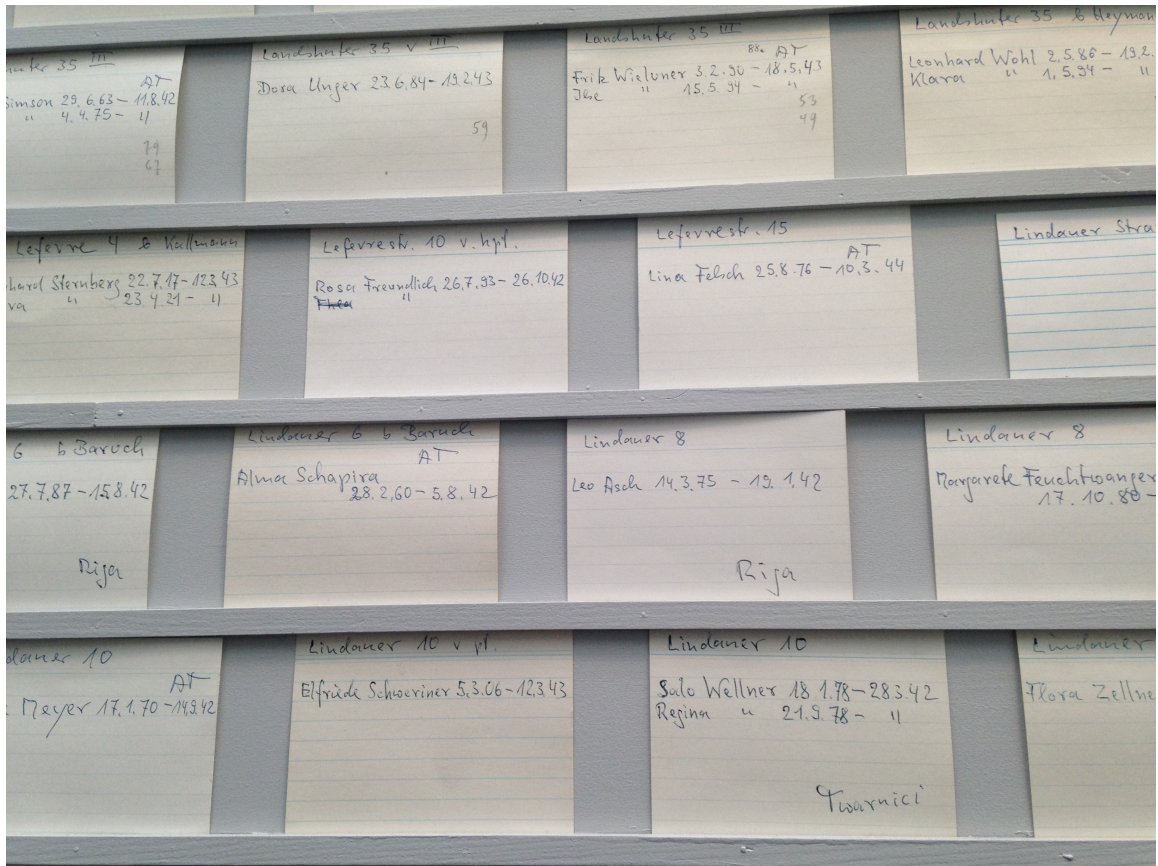 35 III
AT
Simson 29.6.63 – 11.8.42
" 4.4.75 – "
79
67
Landshuter 35 v III
Dora Unger 23.6.84 – 19.2.43
59
Landshuter 35 III
88. AT
Fritz Wieluner 3.2.90 – 18.5.43
Ilse " 15.5.94 – "
53
49
Landshuter 35 b Heyman
Leonhard Wohl 2.5.86 – 19.2.
Klara " 1.5.94 – "
Lefevre 4 b Kallmann
hard Sternberg 22.7.17 – 12.3.43
va " 23.4.21 – "
Lefevrestr. 10 v. hpt.
Rosa Freundlich 26.7.93 – 26.10.42
Thea "
Lefevrestr. 15
AT
Lina Felsch 25.8.76 – 10.3.44
Lindauer Stra
6 b Baruch
27.7.87 – 15.8.42
Riga
Lindauer 6 b Baruch
AT
Alma Schapira
28.2.60 – 5.8.42
Lindauer 8
Leo Asch 14.3.75 – 19.1.42
Riga
Lindauer 8
Margarete Feuchtwanger
17.10.80 –
dauer 10
AT
Meyer 17.1.70 – 14.9.42
Lindauer 10 v pt.
Elfriede Schweriner 5.3.06 – 12.3.43
Lindauer 10
Salo Wellner 18.1.78 – 28.3.42
Regina " 21.9.78 – "
Twarnici
Lindauer
Flora Zellne